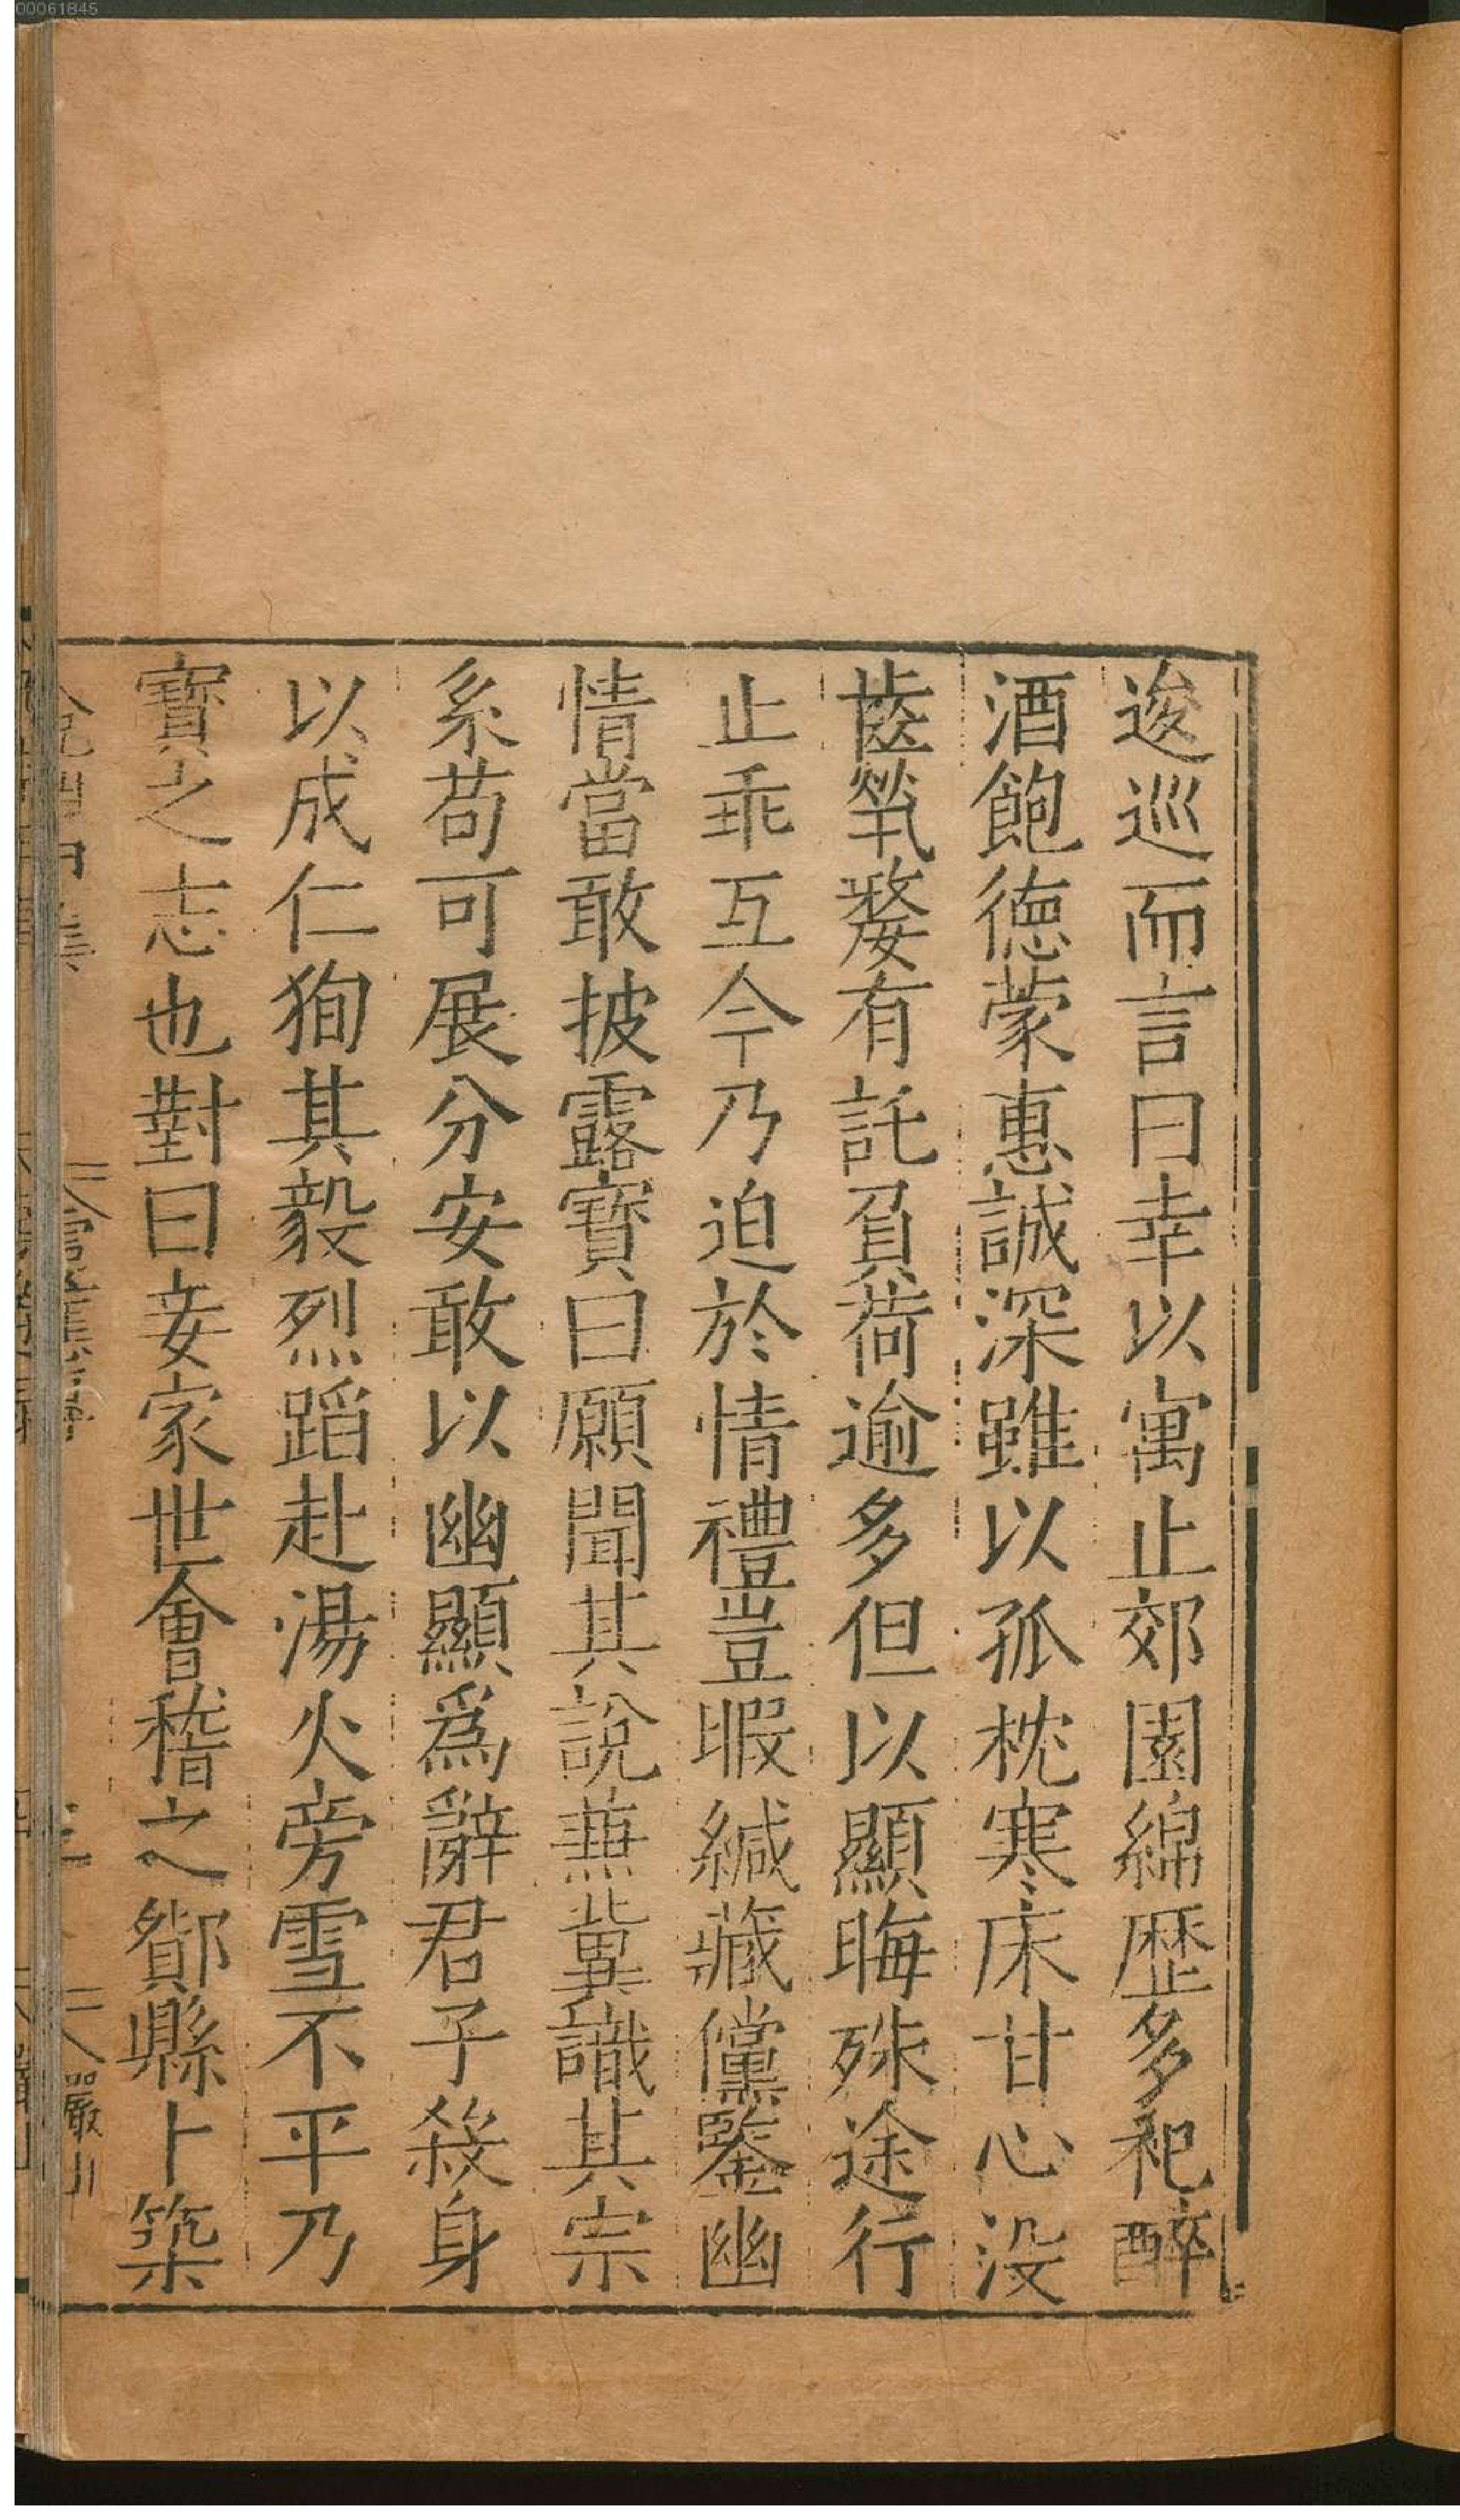 00061845
逡巡而言曰幸以寓止郊園綿歴多祀醉
酒飽徳蒙惠誠深雖以孤枕寒床甘心没
齒煢嫠有託負荷逾多但以顯晦殊途行
止乖互今乃迫於情禮豈暇緘藏儻鑒幽
情當敢披露寳曰願聞其說蕪兾識其宗
系苟可展分安敢以幽顯爲辭君子殺身
以成仁狥其毅烈蹈赴湯火旁雪不平乃
寳之志也對曰妾家世會稽之鄮縣卜築